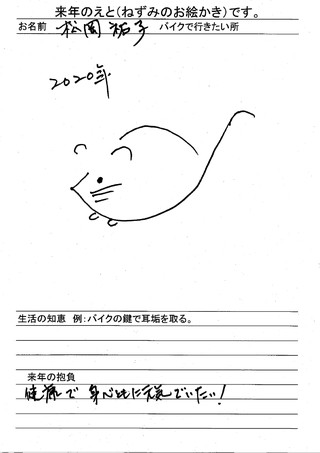 来年のえと(ねずみのお絵かき)です。
お名前 松岡 祐子 バイクで行きたい所
2020年
生活の知恵 例:バイクの鍵で耳垢を取る。
来年の抱負
健康で 身心ともに元気でいたい!